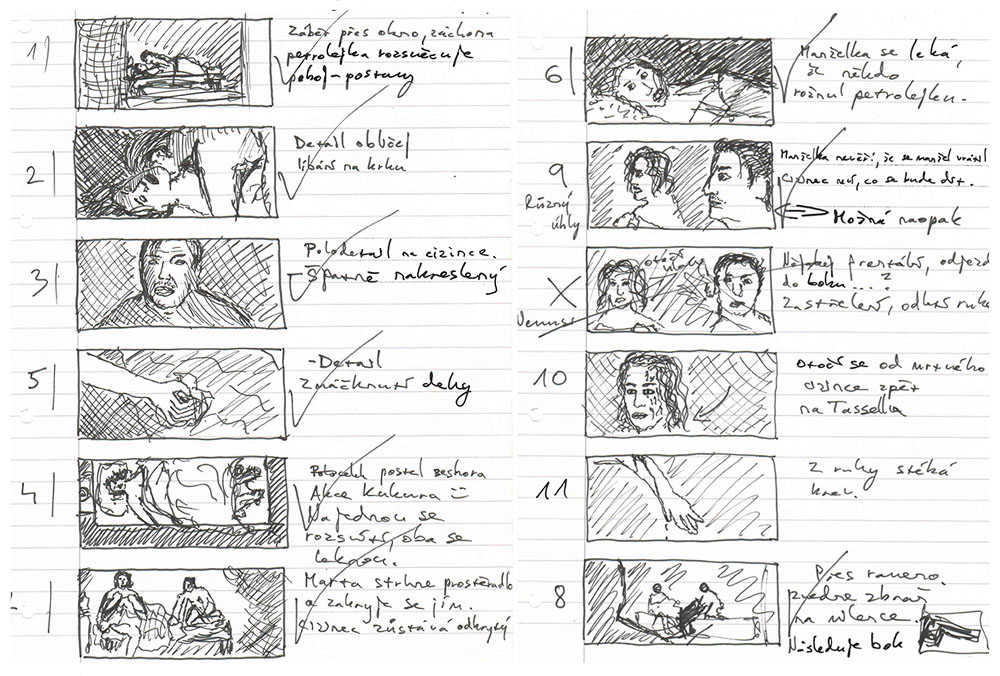 1)
Záběr přes okno, záclona
petrolejka rozsvěcuje
pokoj - postavy
2
Detail obličej
líbání na krku
3
Polodetail na cizince.
Špatně nakreslený
5
- Detail
Zmáčknutí deky
4
Polocelek postel seshora
Akce Kukura
Najednou se
rozsvítí, oba se
leknou.
Marta strhne prostěradlo
a zakryje se jím.
Cizinec zůstává odkrytý
6
Manželka se leká,
že někdo
rožnul petrolejku.
9
Různý
úhly
Manželka nevěří, že se manžel vrátil
Cizinec neví, co se bude dít.
Možná naopak
X
Venuse
frontální, odjezd
do boku...?
Zastřelení,
10
Otočí se od mrtvého
cizince zpět
na Tassella
11
Z ruky stéká
krev.
8
Přes rameno.
zvedne zbraň
na milence.
Následuje bok